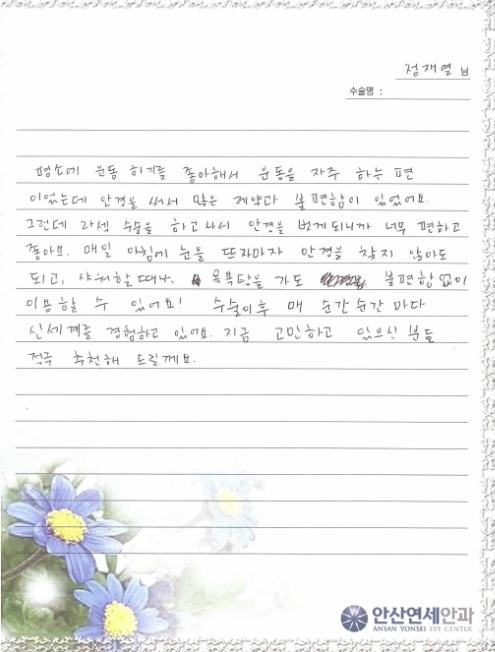 정재열 님
수술명 :
평소에 운동 하기를 좋아해서 운동을 자주 하는 편
이었는데 안경을 써서 많은 제약과 불편함이 있었어요.
그런데 라섹 수술을 하고나서 안경을 벗게되니까 너무 편하고
좋아요. 매일 아침에 눈을 뜨자마자 안경을 찾지 않아도
되고, 샤워할때나. 목욕탕을 가도 불편함없이
이용할 수 있어요! 수술이후 매 순간순간 마다
신세계를 경험하고 있어요. 지금 고민하고 있으신 분들
적극 추천해 드릴께요.
안산연세안과
ANSAN YONSEI EYE CENTER